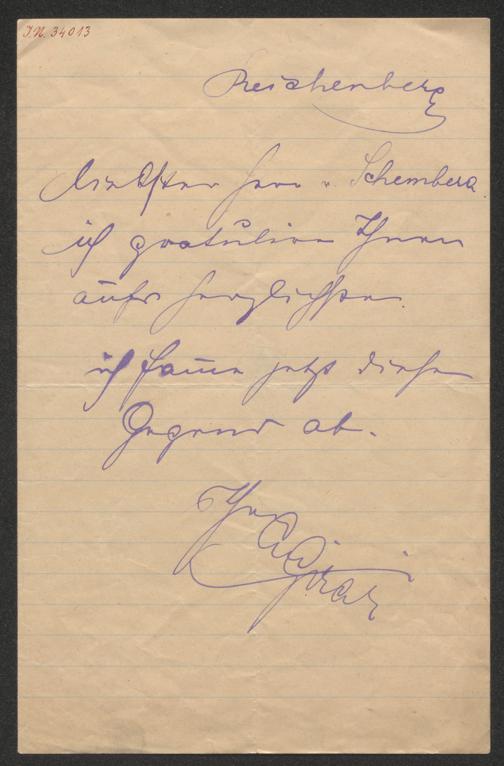 I.N. 34013
Reichenberg
Liebster Herr v. Schembera
ich gratulire Ihnen
aufs herzlichste.
ich grase jetzt diese
Gegend ab.
Ihr
AGirardi